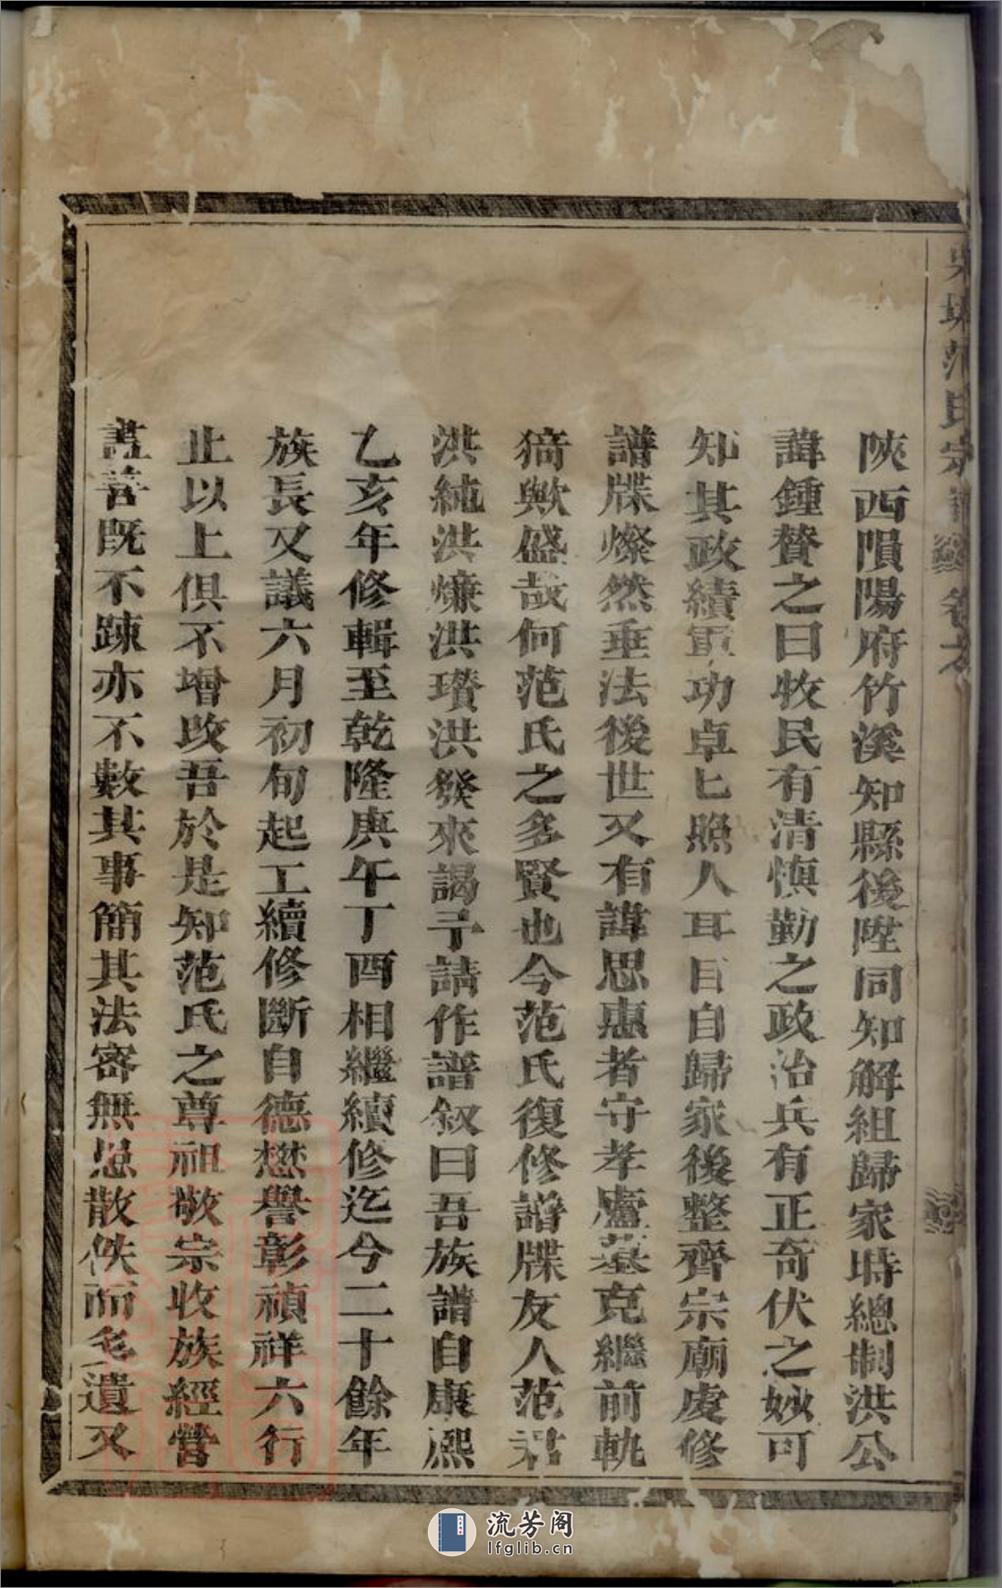 范氏宗譜
陝西隕陽府竹溪知縣後陞同知解組歸家時總制洪公
諱鍾贊之曰牧民有清慎勤之政治兵有正奇伏之妙可
知其政績軍功卓匕照人耳目自歸家後整齊宗廟虔修
譜牒燦然垂法後世又有諱思惠者守孝廬墓克繼前軌
猗歟盛哉何范氏之多賢也今范氏復修譜牒友人范君
洪純洪㷿洪瓚洪發來謁予請作譜叙曰吾族譜自康熙
乙亥年修輯至乾隆庚午丁酉相繼續修迄今二十餘年
族長又議六月初旬起工續修斷自德懋譽彰禎祥六行
止以上俱不增改吾於是知范氏之尊祖敬宗收族經營
盡善既不踈亦不數其事簡其法密無患散佚而毛遺又
流芳阁
lfglib.cn